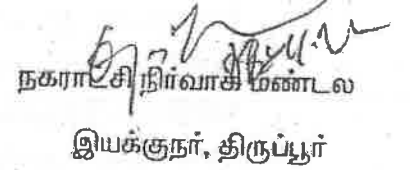 நகராட்சி நிர்வாக மண்டல
இயக்குநர், திருப்பூர்